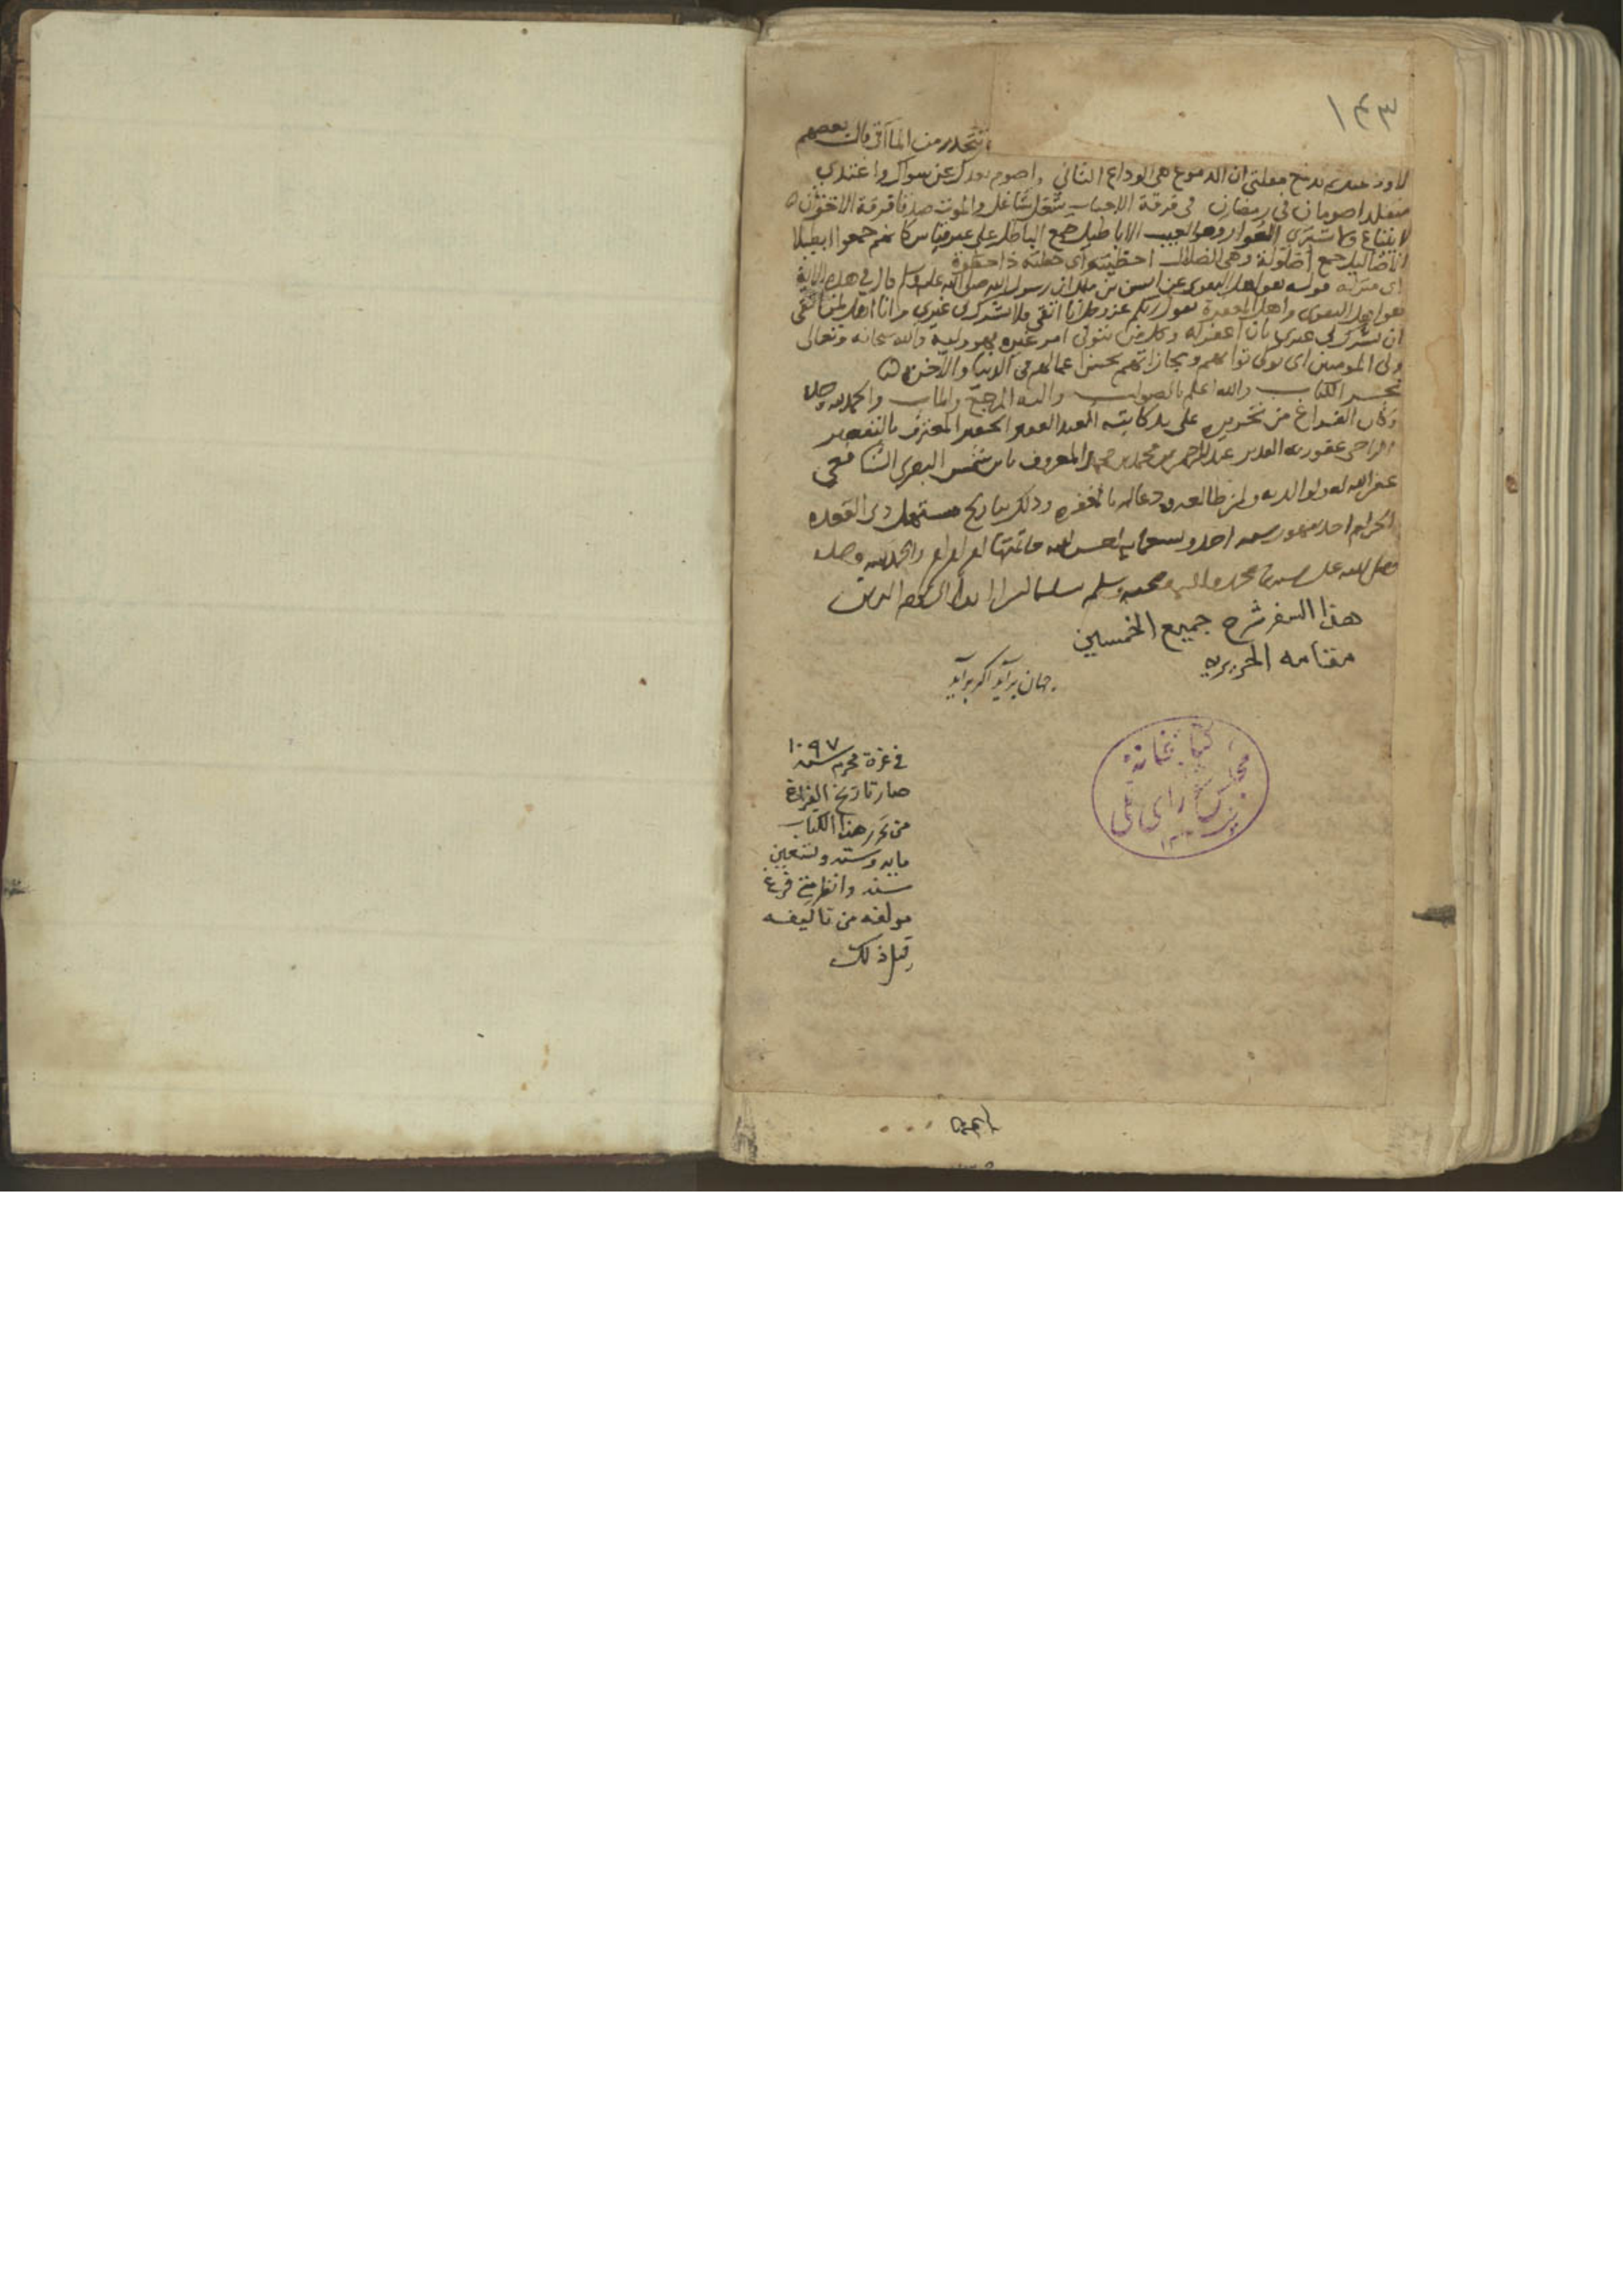 ١٤٣
تتحدر من المآقي قال بعضهم
ان الدموع هي الوداع الثاني واصوم بعدك عن سواك واغتدي
متقلدا صومان في رمضان في فرقة الاحباب شغل شاغل والموت صدقا فرقة الاخوان ه
لا يبتاع ولا يشترى العوار وهو العيب الاباطيل جمع الباطل على غير قياس كانهم جمعوا ابطيلا
الاضاليل جمع اضلولة وهي الضلال احظيته اي جعلته ذا حظوة
اي منزلة قوله هو اهل التقوى عن انس بن ملك ان رسول الله صلى الله عليه وسلم قال في هذه الاية
هو اهل التقوى واهل المغفرة يقول ربكم عز وجل انا اتقى فلا يشرك بي غيري وانا اهل لمن اتقى
ان يشرك بي غيري بان اغفر له وكل من يتولى امر غيره فهو وليه والله سبحانه وتعالى
ولي المومنين اي يولى ثوابهم ومجازاتهم بحسن اعمالهم في الدنيا والآخرة ه
نجز الكتاب والله اعلم بالصواب واليه المرجع والماب والحمد لله وحده
وكان الفراغ من تحريره على يد كاتبه العبد الفقير الحقير المعترف بالتقصير
الراجي عفو ربه القدير عبد الرحمن بن محمد بن محمد المعروف بابن شمس الشافعي
غفر الله له ولوالديه ولمن طالعه ودعا له بالمغفرة وذلك بتاريخ مستهل ذي القعدة
الحرام احد شهور سنه احد وتسعمايه احسن الله عاقبتها والحمد لله وحده
وصلى الله على سيدنا محمد واله وصحبه وسلم تسليما كثيرا ابدا الى يوم الدين
هذا السفر شرح جميع الخمسين
مقامه الحريريه
جهان برآيد اگر برآيد
في غرة محرم سنه ١٠٩٧
صار تاريخ الفراغ
من تحرر هذا الكتاب
مايه وسته وتسعين
سنه وانظر متى فرغ
مولفه من تاليفه
قبل ذلك
كتابخانۀ
مجلس شورای ملی